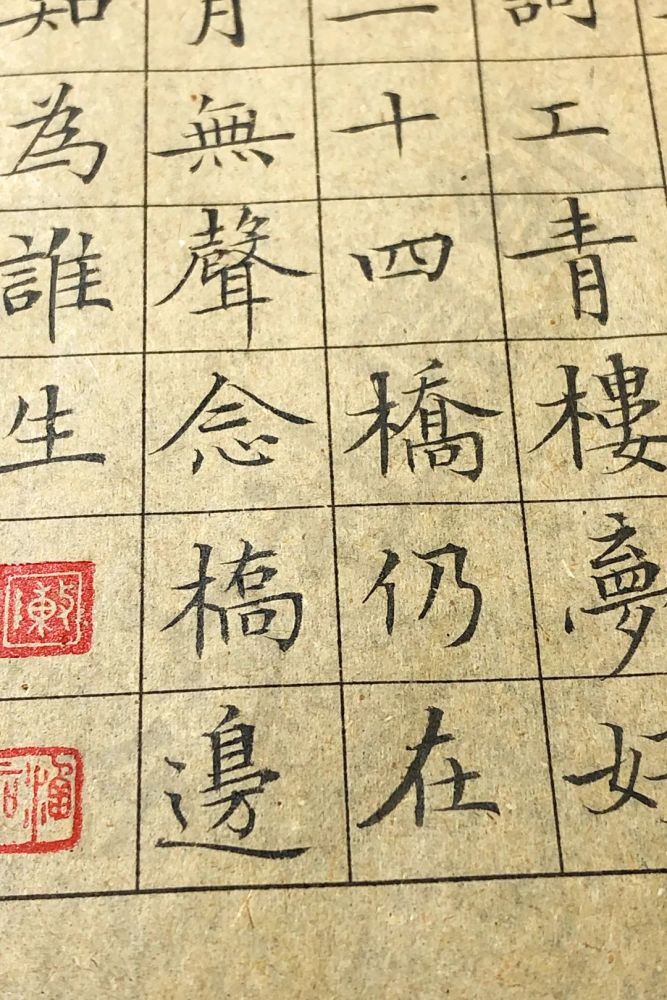 詞工青樓夢好
二十四橋仍在
月無聲念橋邊
知為誰生